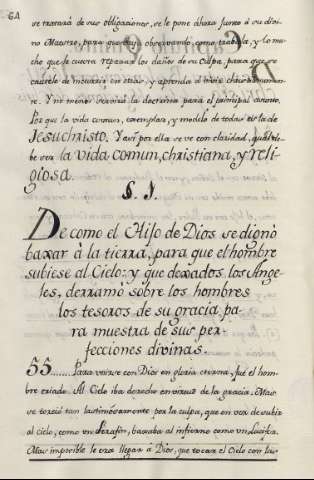 64
se tratará de sus obligaciones, se le pone ahora junto á su divi-
no Maestro, para que vaya observando, como trabaja, y lo mu-
cho que le cuesta reparar los daños de su Culpa, para que se
cautele de incurrir en otras, y aprenda á vivir christianamen-
te. Y no menos servirá la doctrina para el principal asunto.
Por que la vida comun, exemplar, y modelo de todas es la de
Jesuchristo. Y assi por ella se ve con claridad, qual de-
be ser la vida comun, christiana, y reli-
giosa.
§. I.
De como el Hijo de Dios se dignó
baxar à la tierra, para que el hombre
subiese al Cielo: y que dexados los Ange-
les, derramó sobre los hombres
los tesoros de su gracia, pa-
ra muestra de sus per-
fecciones divinas.
55. Para verse con Dios en gloria eterna, fué el hom-
bre criado. Al Cielo iba derecho en virtud de la gracia. Mas
se torció tan lastimosamente por la culpa, que en vez de subir
al cielo, como un Serafin, baxaba al infierno como un Lucifer.
Mas imposible le era llegar á Dios, que tocar el Cielo con las